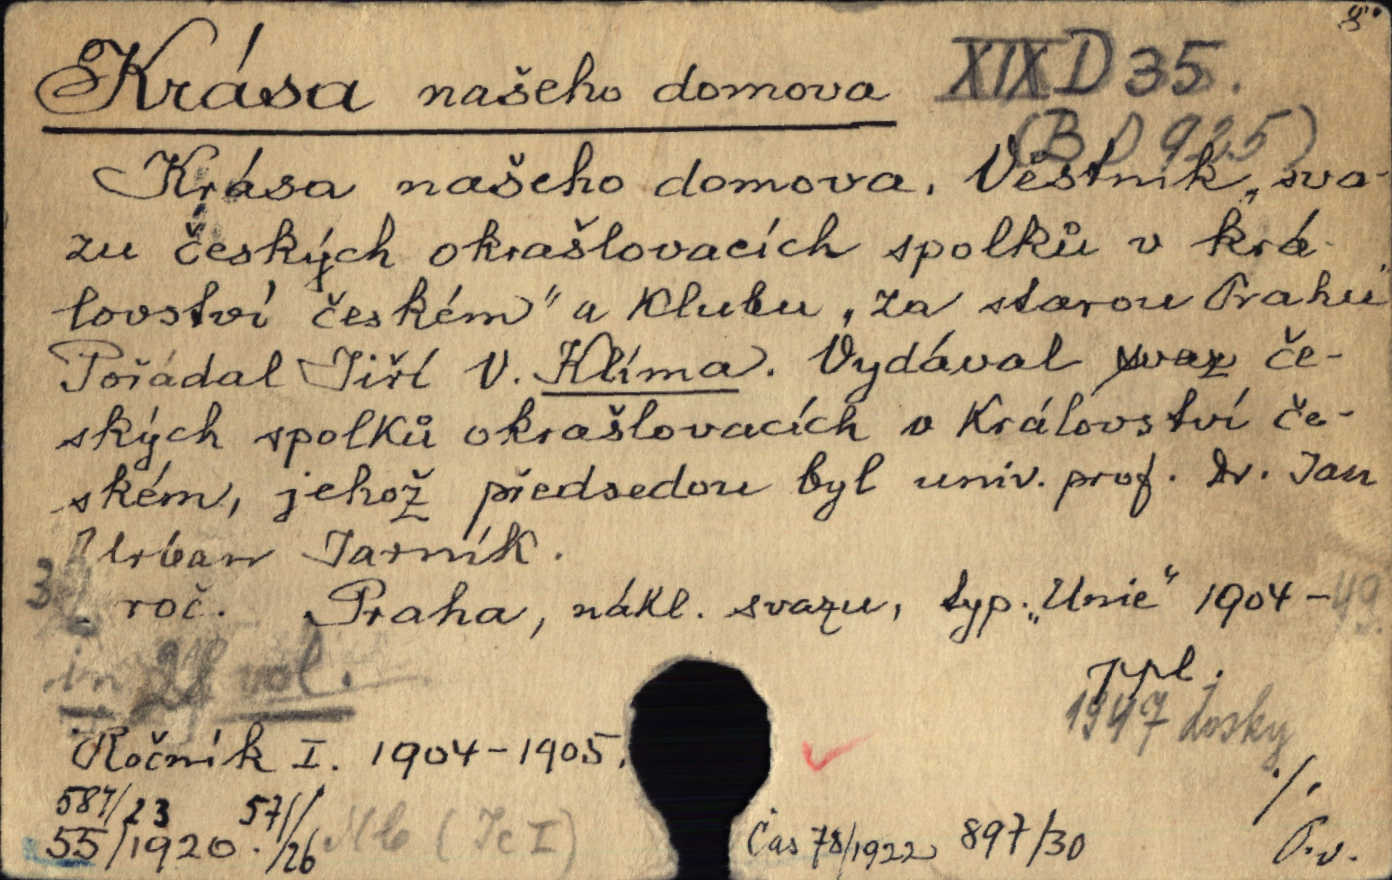 8°
Krása našeho domova
XIX D 35.
(B D 925)
Krása našeho domova. Věstník „sva-
zu českých okrašlovacích spolků v krá-
lovství českém" a Klubu „Za starou Prahu"
Pořádal Jiří V. Klíma. Vydával svaz če-
ských spolků okrašlovacích v Království če-
ském, jehož předsedou byl univ. prof. Dr. Jan
Urban Jarník.
roč. Praha, nákl. svazu, typ. „Unie" 1904-49.
in 28 vol.
ppl.
1947 desky
Ročník I. 1904-1905.
./.
587/23 571/
55/1920. /26
(Ic I)
Čas 78/1922 897/30
P.v.